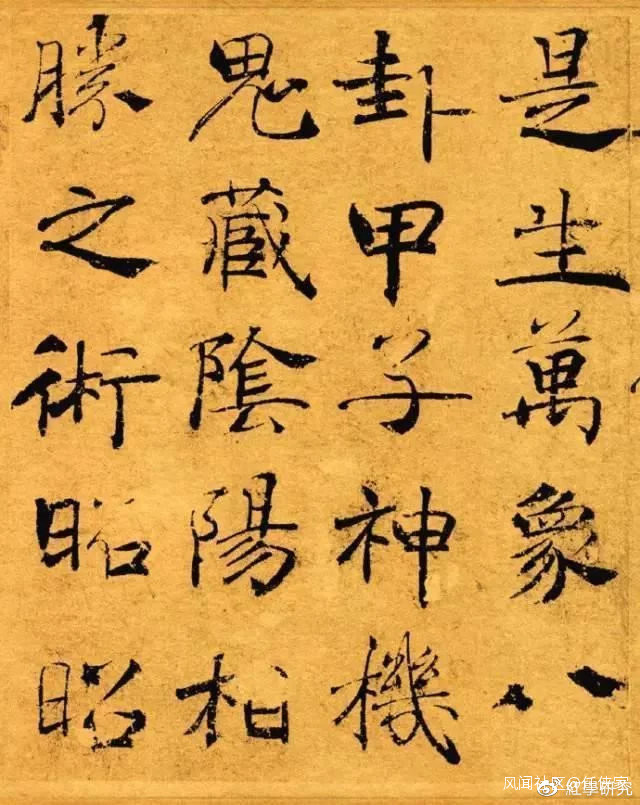 是生萬象八
卦甲子神機
鬼藏陰陽相
勝之術昭昭
风闻社区@任佳宝
紅學研究